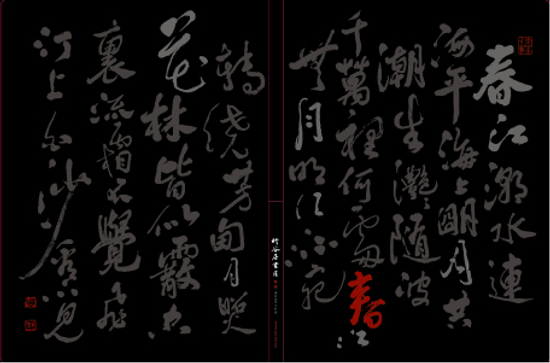 春江潮水連
海平海上明月共
潮生灩〻隨波
千萬裡何處春江
無月明江流宛
轉繞芳甸月照
花林皆似霰空
裏流霜不覺飛
汀上白沙看不見